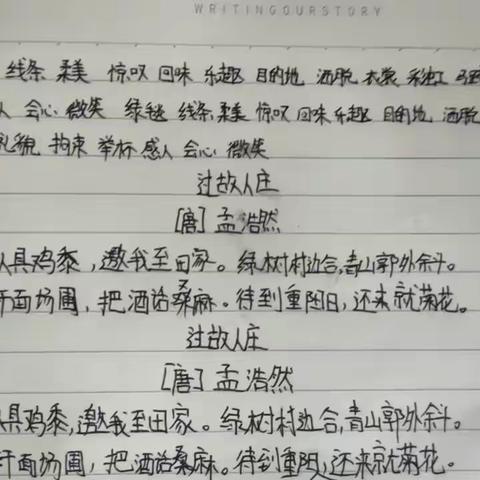 WRITINGOURSTORY
线条 柔美 惊叹 回味 乐趣 目的地 洒脱 衣裳 彩虹
人 会心 微笑 绿毯 线条 柔美 惊叹 回味 乐趣 目的地 洒脱
礼貌 拘束 举杯 感人 会心 微笑
过故人庄
[唐] 孟浩然
人具鸡黍，邀我至田家。绿树村边合,青山郭外斜。
开面场圃，把酒话桑麻。待到重阳日，还来就菊花。
过故人庄
[唐] 孟浩然
人具鸡黍,邀我至田家。绿树村边合,青山郭外斜。
开面场圃，把酒话桑麻。待到重阳，还来就菊花。